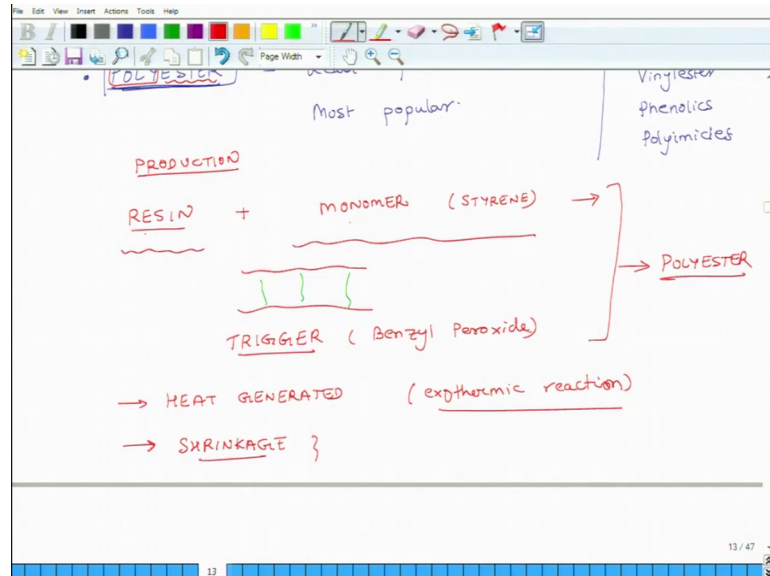 File Edit View Insert Actions Tools Help
B I
Page Width
POLYESTER
Most popular.
Vinylester
Phenolics
Polyimides
PRODUCTION
RESIN + MONOMER (STYRENE) →
→ POLYESTER
TRIGGER (Benzyl Peroxide)
→ HEAT GENERATED (exothermic reaction)
→ SHRINKAGE }
13 / 47
13